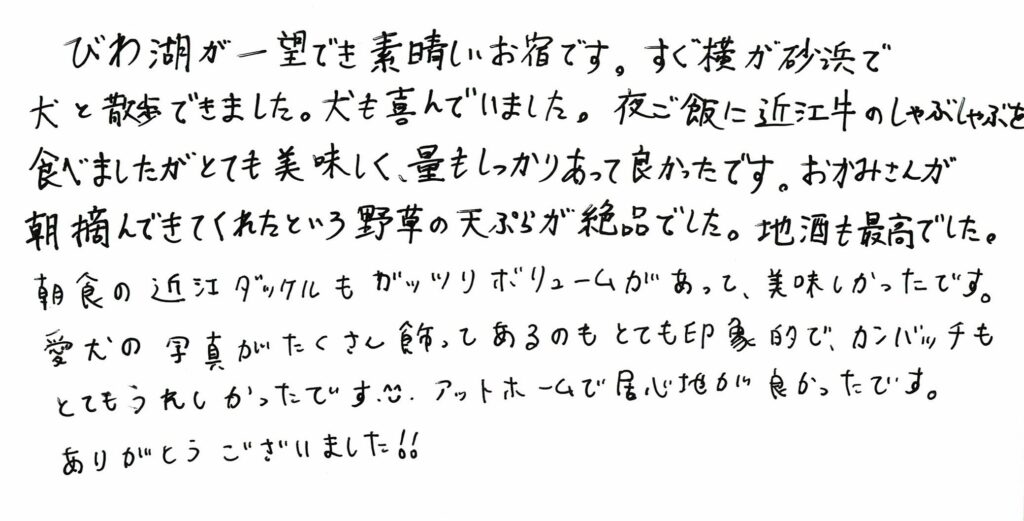 びわ湖が一望でき素晴しいお宿です。すぐ横が砂浜で
犬と散歩できました。犬も喜んでいました。夜ご飯に近江牛のしゃぶしゃぶを
食べましたがとても美味しく、量もしっかりあって良かったです。おかみさんが
朝摘んできてくれたという野草の天ぷらが絶品でした。地酒も最高でした。
朝食の近江ダックルもガッツリボリュームがあって、美味しかったです。
愛犬の写真がたくさん飾ってあるのもとても印象的で、カンバッチも
とてもうれしかったです。アットホームで居心地が良かったです。
ありがとうございました!!